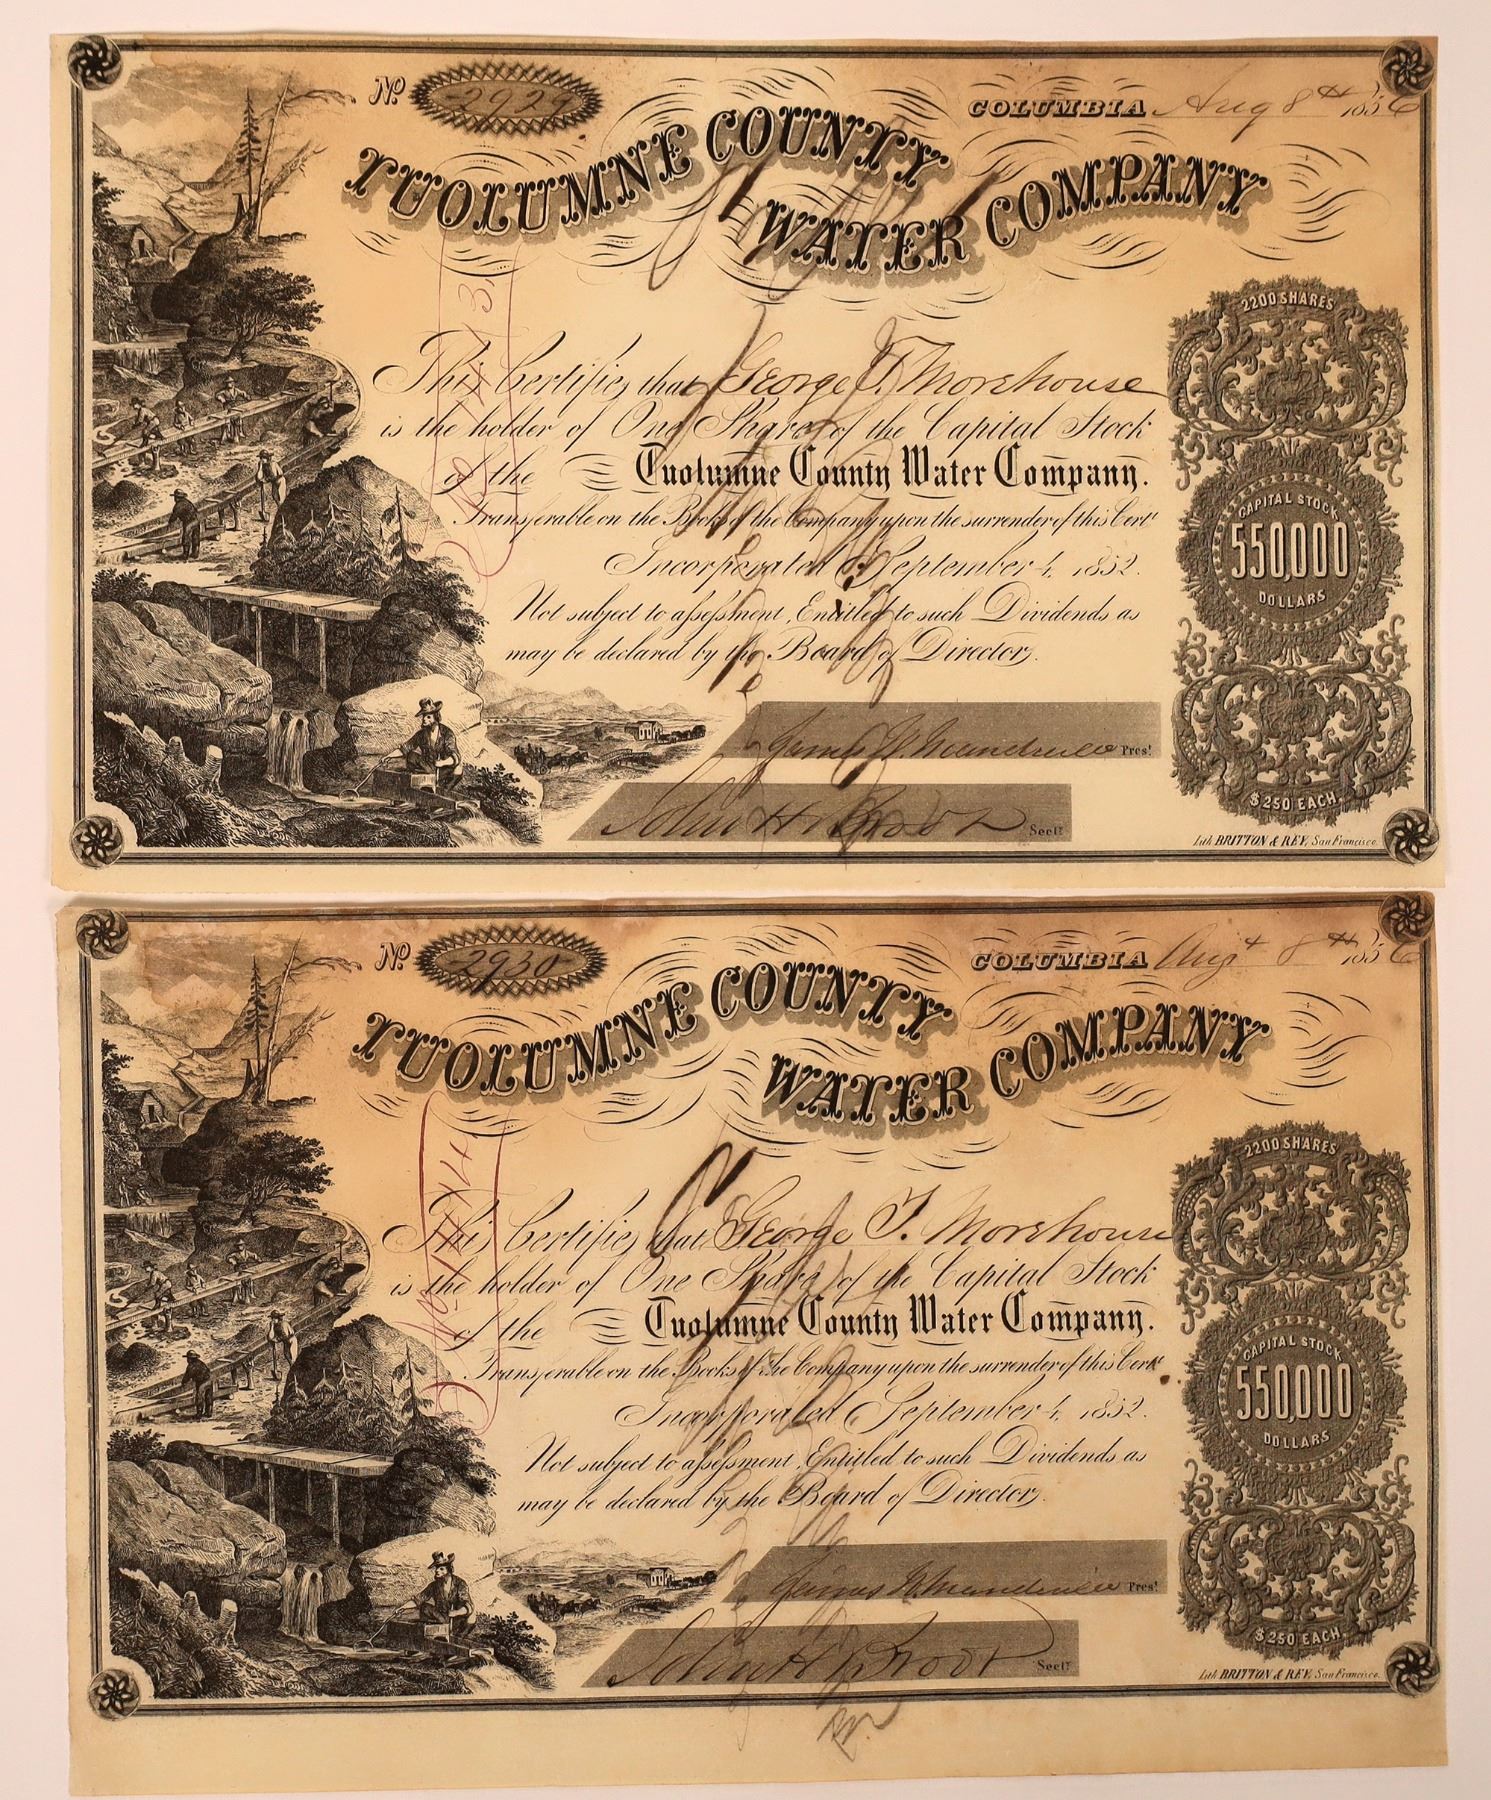 No. 2929
COLUMBIA Aug 8th 1856
TUOLUMNE COUNTY
WATER COMPANY
2200 SHARES
This Certifies that George T. Morehouse
is the holder of One Share of the Capital Stock
of the Tuolumne County Water Company.
Transferable on the Books of the Company upon the surrender of this Cert.
CAPITAL STOCK
550,000
DOLLARS
Incorporated September 4, 1852.
Not subject to assessment, Entitled to such Dividends as
may be declared by the Board of Directors.
Prest
John H. Root Secty
$250 EACH
Lith. BRITTON & REY, San Francisco.
No. 2930
COLUMBIA Augt 8th 1856
TUOLUMNE COUNTY
WATER COMPANY
2200 SHARES
This Certifies that George T. Morehouse
is the holder of One Share of the Capital Stock
of the Tuolumne County Water Company.
Transferable on the Books of the Company upon the surrender of this Cert.
CAPITAL STOCK
550,000
DOLLARS
Incorporated September 4, 1852.
Not subject to assessment, Entitled to such Dividends as
may be declared by the Board of Directors.
Prest
John H. Root Secty
$250 EACH
Lith. BRITTON & REY, San Francisco.